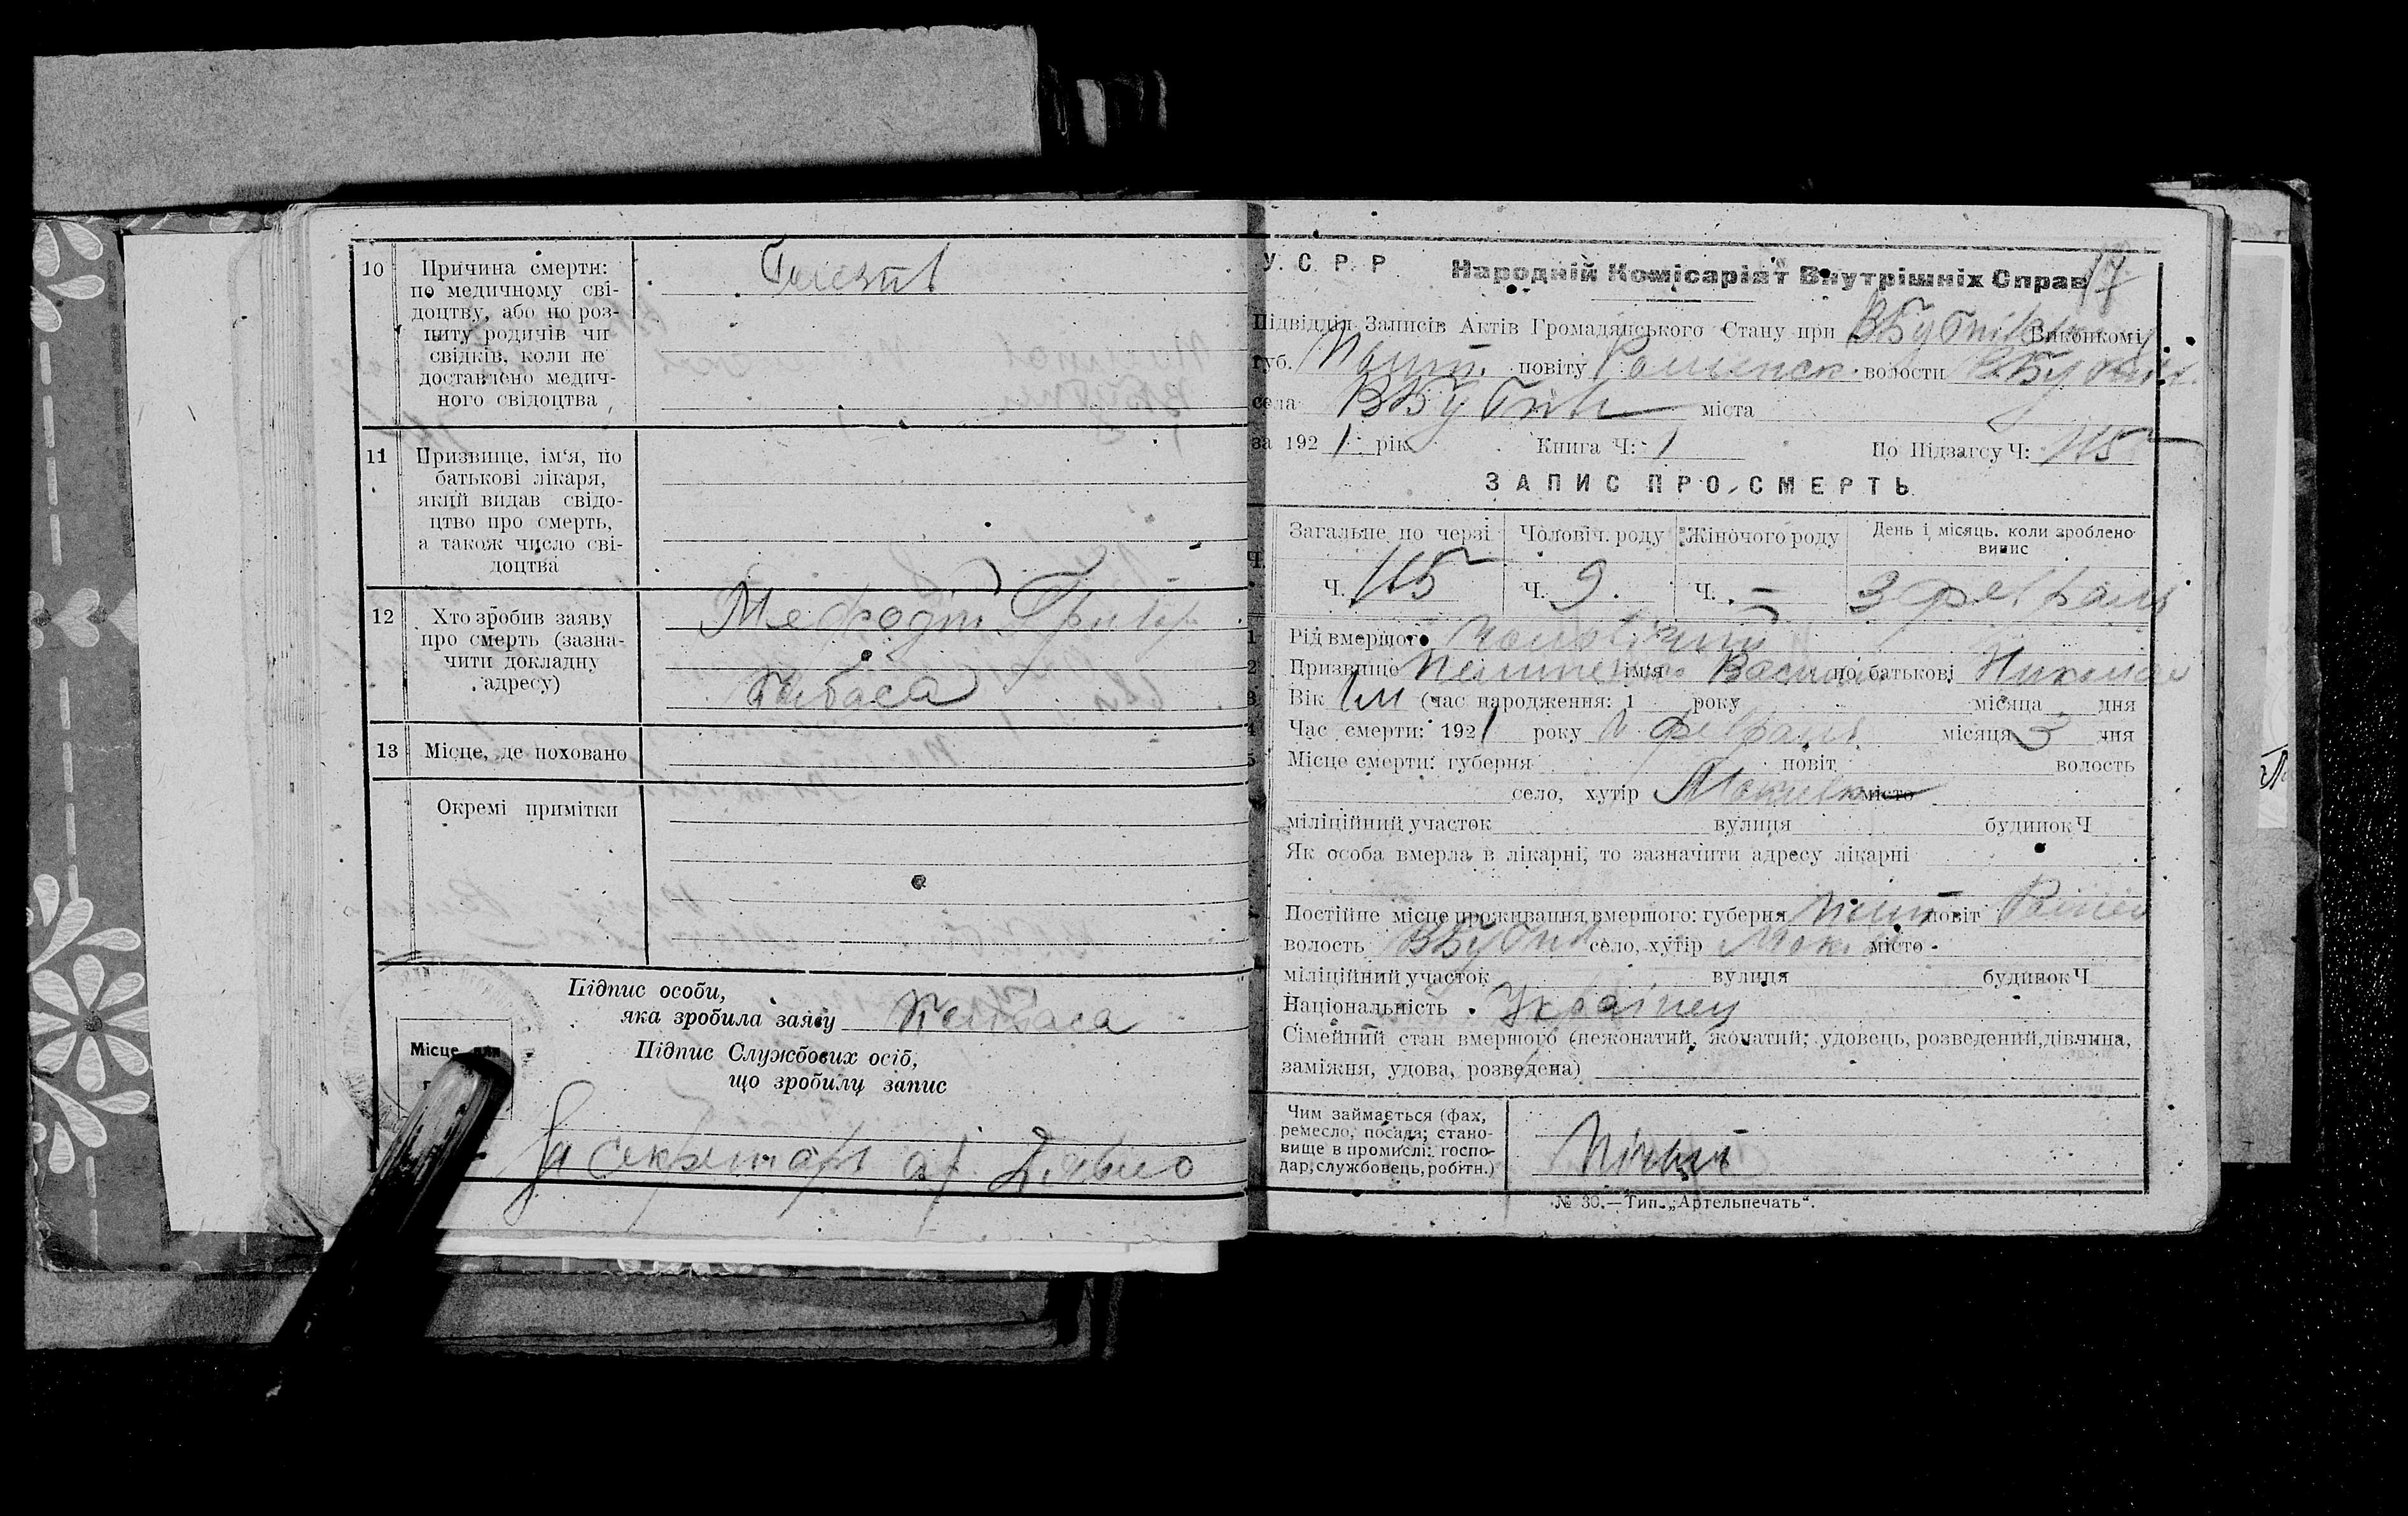 10 Причина смерти:
по медичному сві-
доцтву, або по роз-
питу родичів чи
свідків, коли не
доставлено медич-
ного свідоцтва
11 Призвище, ім'я, по
батькові лікаря,
який видав свідо-
цтво про смерть,
а також число сві-
доцтва
12 Хто зробив заяву
про смерть (зазна-
чити докладну
адресу)
Мефодій Григор.
13 Місце, де поховано
Окремі примітки
Підпис особи,
яка зробила заяву
Підпис Службових осіб,
що зробилу запис
Місце для
За секретаря
У. С. Р. Р. Народній Комісаріят Внутрішніх Справ 17
Підвідділ Записів Актів Громадянського Стану при ВБубнівском Виконкомі
губ. Полт. повіту Роменск. волости ВБубнів.
села ВБубнів міста
за 1921 рік Книга Ч: 1 По Підзагсу Ч: 115
ЗАПИС ПРО СМЕРТЬ
Загальне по черзі Чоловіч. роду Жіночого роду День і місяць, коли зроблено
випис
Ч. 115 Ч. 9. Ч. — 3 февраля
1 Рід вмершого Чоловічий
2 Призвище імя Василь по батькові Никола
3 Вік 1 м (час народження: 1 року місяца дня
4 Час смерти: 1921 року февраля місяця 3 дня
5 Місце смерти: губерня повіт волость
село, хутір місто
міліційний участок вулиця будинок Ч
Як особа вмерла в лікарні, то зазначити адресу лікарні
Постійне місце проживання вмершого: губерня Полт повіт Ромен
волость ВБубнів село, хутір місто
міліційний участок вулиця будинок Ч
Національність Украінец
Сімейний стан вмершого (нежонатий, жонатий; удовець, розведений, дівчина,
заміжня, удова, розведена)
Чим займається (фах,
ремесло, посада; стано-
вище в промислі: госпо-
дар, службовець, робітн.)
№ 30.—Тип. „Артельпечать“.